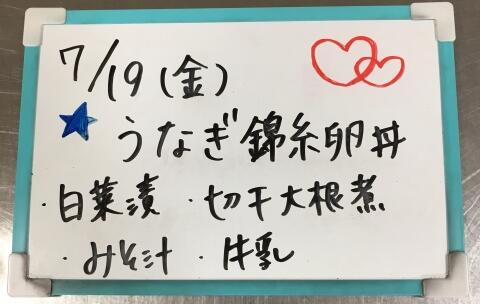 7/19(金)
うなぎ錦糸卵丼
・白菜漬・切干大根煮
・みそ汁・牛乳